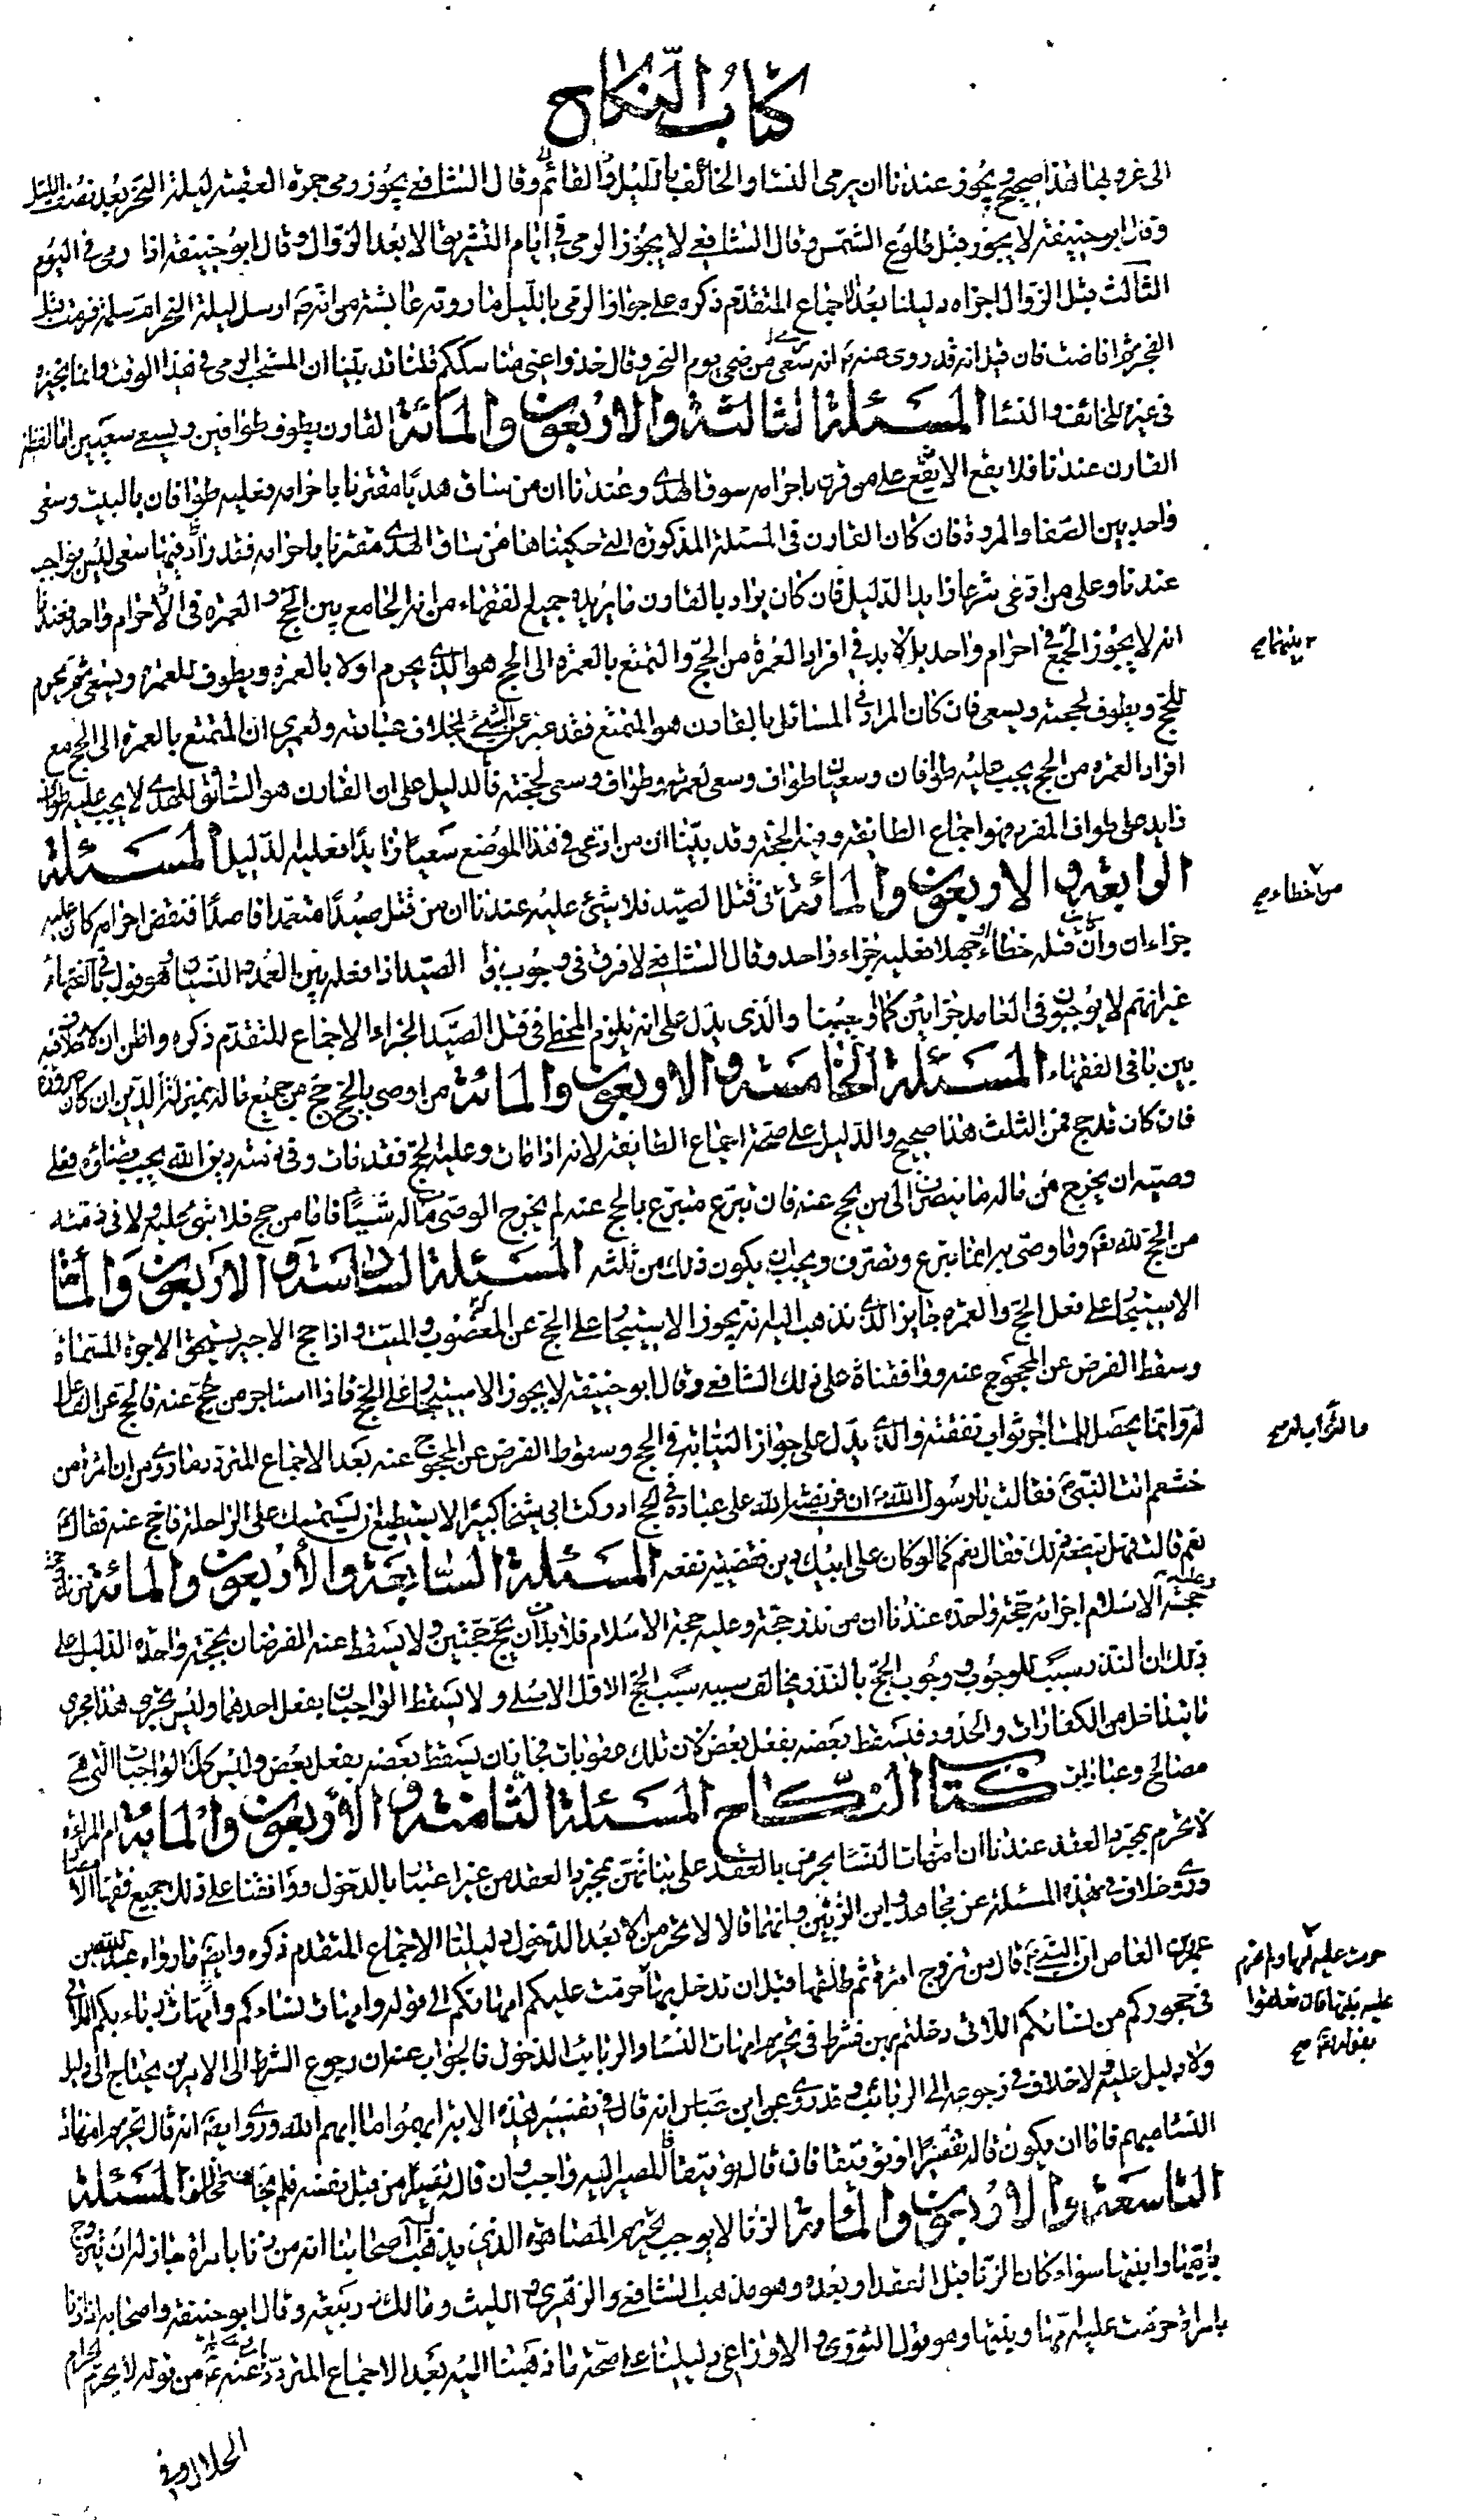 كتاب النكاح
الى غروبها هذا صحيح ويجوز عندنا ان يرمى النساء والخائف بالليل وقال الشافعي يجوز رمى جمرة العقبة ليلة النحر بعد نصف الليل
وقال ابو حنيفة لا يجوز قبل طلوع الشمس وقال الشافعي لا يجوز الرمى في ايام التشريق الا بعد الزوال وقال ابو حنيفة اذا رمى في اليوم
الثالث قبل الزوال اجزاه دليلنا بعد الاجماع المتقدم ذكره على جواز الرمى بالليل ما روته عايشة من انه ارسل ليلة النحر ام سلمة فرمت قبل
الفجر ثم افاضت فان قيل انه قد روى عنه انه رمى ضحى يوم النحر وقال خذوا عنى مناسككم قلنا قد بينا ان المستحب الرمى في هذا الوقت وانما يجيزه
في غيره للخائف والنساء المسئلة الثالثة والاربعون والمائة القارن يطوف طوافين ويسعى سعيين اما لفظ
القارن عندنا فلا يقع الا على من قرن باحرامه سوق الهدى وعندنا ان من ساق هديا مقترنا باحرامه فعليه طوافان بالبيت وسعى
واحد بين الصفا والمروة فان كان القارن في المسئلة المذكورة التي حكيناها من ساق الهدى مقترنا باحرامه فقد زاد فيها سعى ليس بواجب
عندنا وعلى من ادعى شرعا زايدا الدليل فان كان يراد بالقارن ما يريده جميع الفقهاء من انه الجامع بين الحج والعمرة في احرام واحد فعندنا
انه لا يجوز الجمع في احرام واحد بل لا بد في افراد العمرة من الحج والتمتع بالعمرة الى الحج هو الذى يحرم اولا بالعمرة ويطوف للعمرة ويسعى ثم يحرم
بينهما صح
للحج ويطوف لحجته ويسعى فان كان المراد في المسائل بالقارن هو المتمتع فقد عبر عن الشئ بخلاف عبارته ولعمرى ان المتمتع بالعمرة الى الحج مع
افراد العمرة من الحج يجب عليه طوافان وسعيان طواف وسعى لعمرته وطواف وسعى لحجته فالدليل على ان القارن هو السائق للهدى لا يجب عليه طواف
زايد على طواف المفرد فهو اجماع الطائفة وفيه الحجة وقد بينا ان من ادعى في هذا الموضع سعيا زايدا فعليه الدليل المسئلة
الرابعة والاربعون والمائة في قتل الصيد فلا شئ عليه عندنا ان من قتل صيدا متعمدا قاصدا لنقض احرامه كان عليه
من خطاء صح
جزاءان وان قتله خطاء او جهلا فعليه جزاء واحد وقال الشافعي لا فرق في وجوب الصيد اذا فعله بين العمد والنسيان وهو قول باقى الفقهاء
غير انهم لا يوجبون في العامد جزائين كما اوجبنا والذى يدل على انه يلزم المخطئ في قتل الصيد الجزاء الاجماع المتقدم ذكره واظن ان لا خلاف فيه
بين باقى الفقهاء المسئلة الخامسة والاربعون والمائة من اوصى بالحج حج من جميع ماله بمنزلة الدين ان كان صرورة
فان كان قد حج فمن الثلث هذا صحيح والدليل على صحته اجماع الطائفة لانه اذا مات وعليه الحج فقد فات وفي ذمته دين الله يجب قضاؤه فعلى
وصيته ان يخرج من ماله ما ينصرف الى من يحج عنه فان تبرع متبرع بالحج عنه لم يخرج الوصى من ماله شيئا فاما من حج فلا شئ عليه ولا في ذمته
من الحج لله تعالى وما وصى به انما تبرع وتصرف ويجب ان يكون ذلك من ثلثه المسئلة السادسة والاربعون والمائة
الاستيجار على فعل الحج والعمرة جايز الذى نذهب اليه انه يجوز الاستيجار على الحج عن المعضوب والميت واذا حج الاجير يستحق الاجرة المسماة
وسقط الفرض عن المحجوج عنه ووافقنا على ذلك الشافعي وقال ابو حنيفة لا يجوز الاستيجار على الحج فاذا استاجر من يحج عنه فالحج عن الفاعل
له وانما يحصل للمستاجر ثواب نفقته والذى يدل على جواز النيابة في الحج وسقوط الفرض عن المحجوج عنه بعد الاجماع المتردد ما روى من ان امرأة من
خثعم اتت النبي فقالت يا رسول الله ان فريضة الله على عباده في الحج ادركت ابى شيخا كبيرا لا يستطيع ان يستمسك على الراحلة فاحج عنه فقال
نعم قالت فهل ينفعه ذلك فقال نعم كما لو كان على ابيك دين فقضيته نفعه المسئلة السابعة والاربعون والمائة من نذر حجة
وعليه حجة الاسلام اجزاته حجة واحدة عندنا ان من نذر حجة وعليه حجة الاسلام فلا بد ان يحج حجتين ولا يسقط عنه الفرضان بحجة واحدة الدليل على
ذلك ان النذر سبب للوجوب ووجوب الحج بالنذر يخالف سببه سبب الحج الاول الاصلى ولا يسقط الواجبان بفعل احدهما وليس يجرى هذا مجرى
ما يتداخل من الكفارات والحدود فيسقط بعضه بفعل بعض لان تلك عقوبات فجاز ان يسقط بعضه بفعل بعض وليس كذلك الواجبات التي هى
مصالح وعبادات كتاب النكاح المسئلة الثامنة والاربعون والمائة ام المراة
لا تحرم بمجرد العقد عندنا ان امهات النساء يحرمن بالعقد على بناتهن بمجرد العقد من غير اعتبار بالدخول ووافقنا على ذلك جميع فقهاء الامصار
وروى خلاف في هذه المسئلة عن مجاهد وابن الزبير وانهما قالا لا يحرمن الا بعد الدخول دليلنا الاجماع المتقدم ذكره وايضا ما رواه عبد الله بن
عمرو بن العاص ان النبي قال من تزوج امرئة ثم طلقها قبل ان تدخل بها حرمت عليكم امهاتكم الى قوله وامهات نسائكم وامهات ربائبكم اللاتى
حرمت عليه امها ولم تحرم
عليه بنتها فان تعلقوا
بقوله تعالى صح
في حجوركم من نسائكم اللاتى دخلتم بهن فشرط في تحريم امهات النساء والربائب الدخول فالجواب عنه ان رجوع الشرط الى الامرين يحتاج الى دليل
ولا دليل عليه ولا خلاف في رجوعه الى الربائب وقد روى عن ابن عباس انه قال في تفسير هذه الاية ابهموا ما ابهم الله وروى ايضا انه قال تحريم امهات
النساء مبهم فاما ان يكون قاله تفسيرا او توقيفا فان قاله توقيفا فالمصير اليه واجب وان قاله تفسيرا من قبل نفسه فلم نجد مخالفا المسئلة
التاسعة والاربعون والمائة الزنا لا يوجب تحريم المصاهرة الذى يذهب اليه اصحابنا انه من زنا بامراة جاز له ان يتزوج
بامها وابنتها سواء كان الزنا قبل العقد او بعده وهو مذهب الشافعي والزهرى والليث ومالك وربيعة وقال ابو حنيفة واصحابه اذا زنا
بامراة حرمت عليه امها وبنتها وهو قول الثورى والاوزاعى دليلنا على صحة ما ذهبنا اليه بعد الاجماع المتردد عنه من قوله لا يحرم الحرام
الحلال وفي